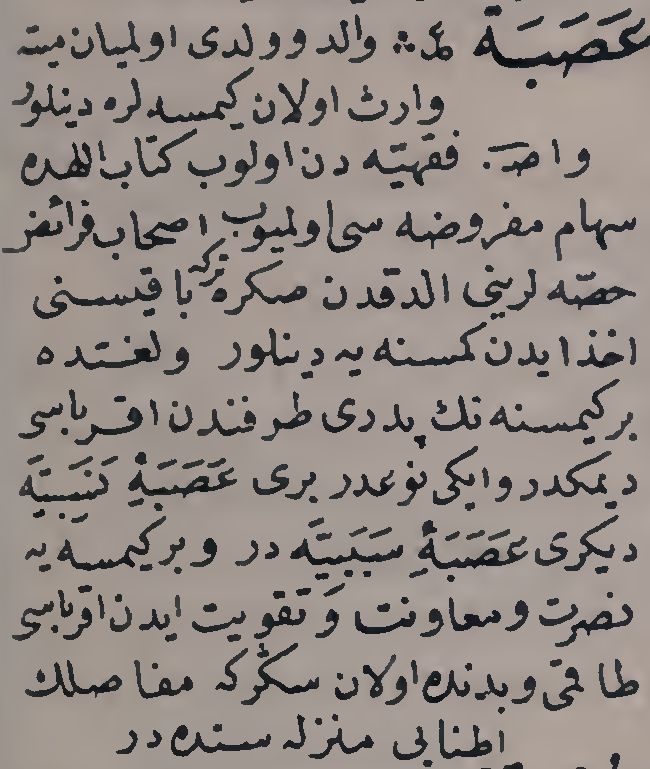 عَصَبَة ع م والد و ولدی اولمیان میته
وارث اولان کیمسه لره دینلور
و اصـ فقهیّه دن اولوب کتاب اللهده
سهام مفروضه سی اولمیوب اصحاب فرائض
حصّه لرینی الدقدن صکره ترکه باقیسنی
اخذ ایدن کمسنه یه دینلور ولغتده
بر کیمسنه نك پدری طرفندن اقرباسی
دیمکدر و ایکی نوعدر بری عَصَبَهٔ نَسَبِیَّه
دیکری عَصَبَهٔ سَبَبِیَّه در و بر کیمسه یه
نصرت و معاونت و تقویت ایدن اقرباسی
طاقمی و بدنده اولان سکرکه مفاصلك
اطنابی منزله سنده در